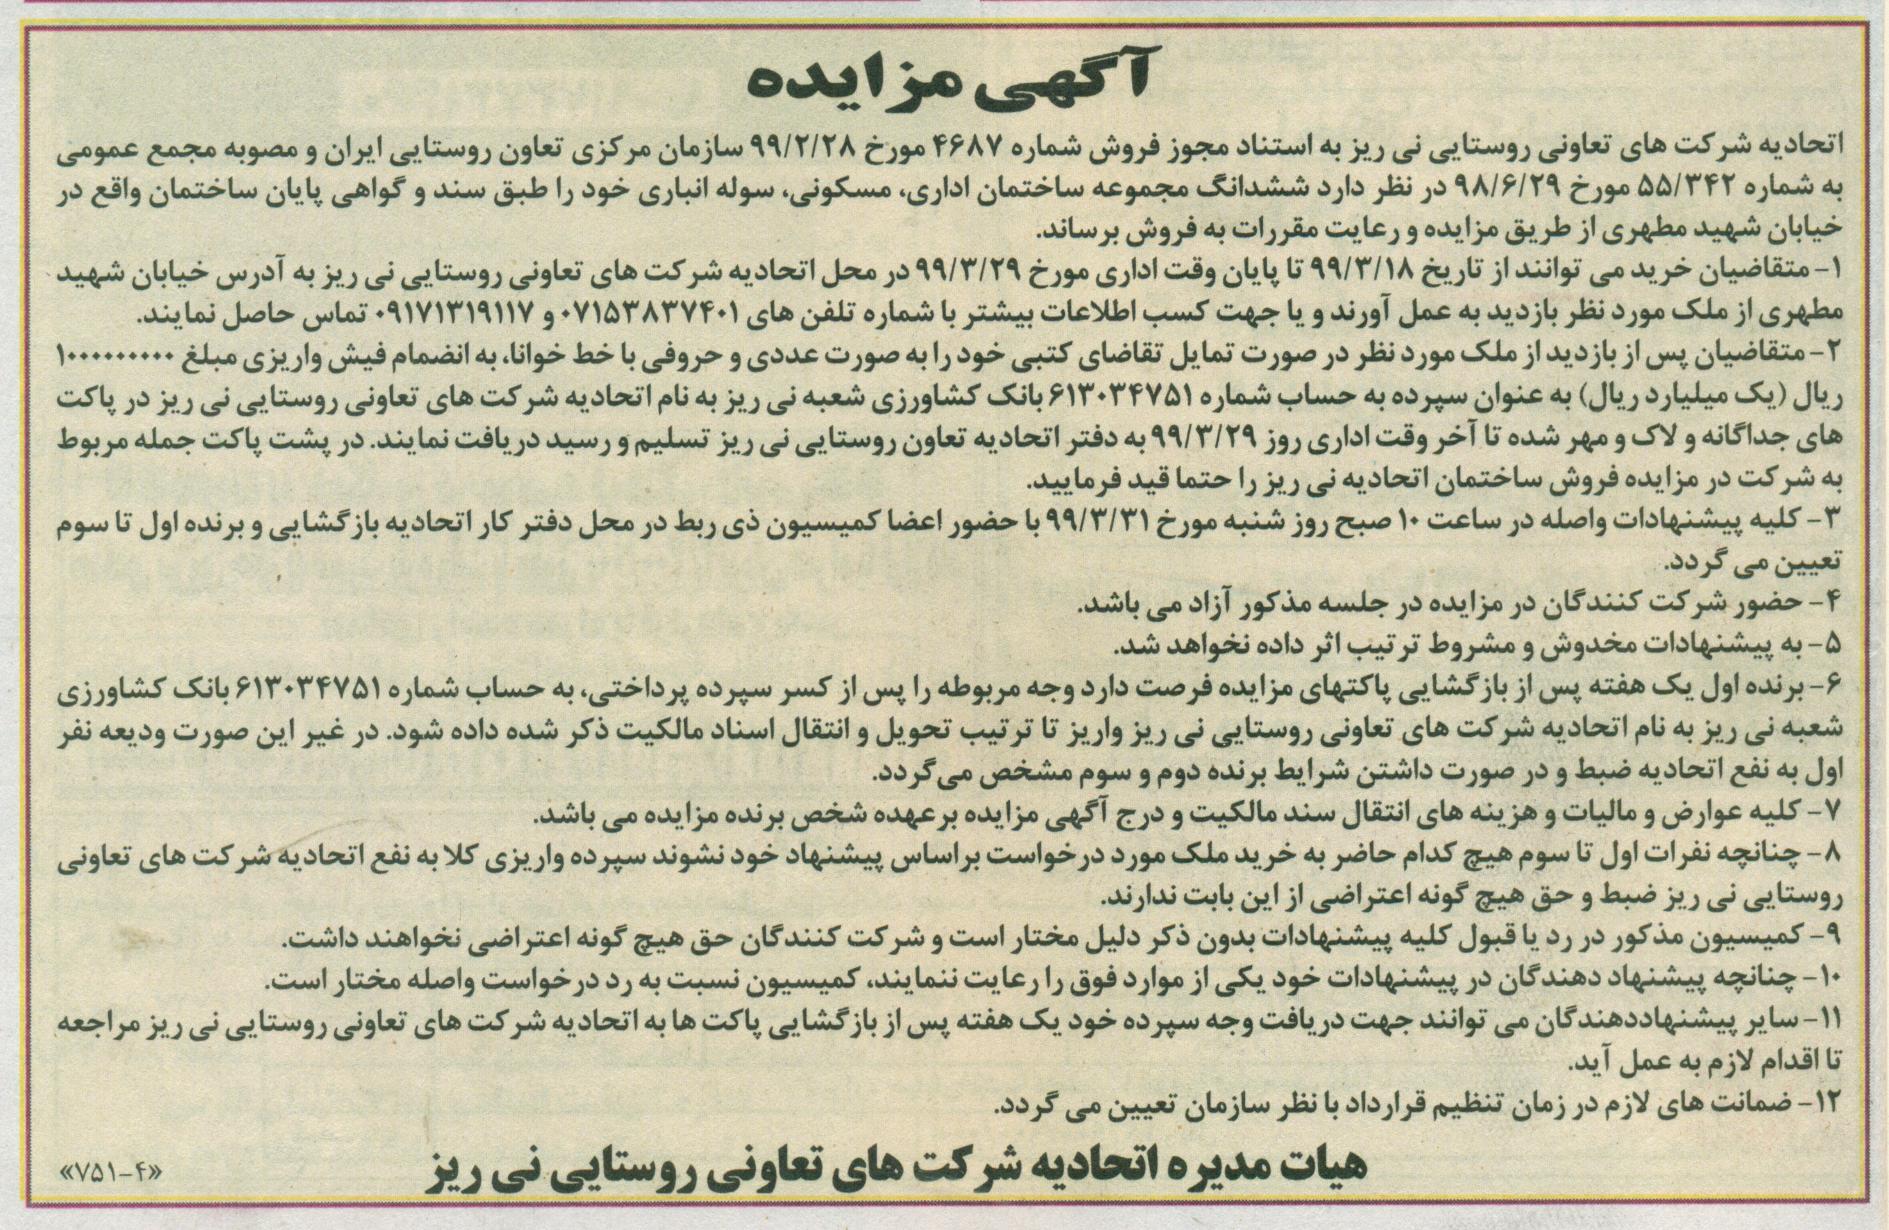 آگهی مزایده
اتحادیه شرکت های تعاونی روستایی نی ریز به استناد مجوز فروش شماره ۴۶۸۷ مورخ ۹۹/۲/۲۸ سازمان مرکزی تعاون روستایی ایران و مصوبه مجمع عمومی
به شماره ۵۵/۳۴۲ مورخ ۹۸/۶/۲۹ در نظر دارد ششدانگ مجموعه ساختمان اداری، مسکونی، سوله انباری خود را طبق سند و گواهی پایان ساختمان واقع در
خیابان شهید مطهری از طریق مزایده و رعایت مقررات به فروش برساند.
۱- متقاضیان خرید می توانند از تاریخ ۹۹/۳/۱۸ تا پایان وقت اداری مورخ ۹۹/۳/۲۹ در محل اتحادیه شرکت های تعاونی روستایی نی ریز به آدرس خیابان شهید
مطهری از ملک مورد نظر بازدید به عمل آورند و یا جهت کسب اطلاعات بیشتر با شماره تلفن های ۰۷۱۵۳۸۳۷۴۰۱ و ۰۹۱۷۱۳۱۹۱۱۷ تماس حاصل نمایند.
۲- متقاضیان پس از بازدید از ملک مورد نظر در صورت تمایل تقاضای کتبی خود را به صورت عددی و حروفی با خط خوانا، به انضمام فیش واریزی مبلغ ۱۰۰۰۰۰۰۰۰۰
ریال (یک میلیارد ریال) به عنوان سپرده به حساب شماره ۶۱۳۰۳۴۷۵۱ بانک کشاورزی شعبه نی ریز به نام اتحادیه شرکت های تعاونی روستایی نی ریز در پاکت
های جداگانه و لاک و مهر شده تا آخر وقت اداری روز ۹۹/۳/۲۹ به دفتر اتحادیه تعاون روستایی نی ریز تسلیم و رسید دریافت نمایند. در پشت پاکت جمله مربوط
به شرکت در مزایده فروش ساختمان اتحادیه نی ریز را حتما قید فرمایید.
۳- کلیه پیشنهادات واصله در ساعت ۱۰ صبح روز شنبه مورخ ۹۹/۳/۳۱ با حضور اعضا کمیسیون ذی ربط در محل دفتر کار اتحادیه بازگشایی و برنده اول تا سوم
تعیین می گردد.
۴- حضور شرکت کنندگان در مزایده در جلسه مذکور آزاد می باشد.
۵- به پیشنهادات مخدوش و مشروط ترتیب اثر داده نخواهد شد.
۶- برنده اول یک هفته پس از بازگشایی پاکتهای مزایده فرصت دارد وجه مربوطه را پس از کسر سپرده پرداختی، به حساب شماره ۶۱۳۰۳۴۷۵۱ بانک کشاورزی
شعبه نی ریز به نام اتحادیه شرکت های تعاونی روستایی نی ریز واریز تا ترتیب تحویل و انتقال اسناد مالکیت ذکر شده داده شود. در غیر این صورت ودیعه نفر
اول به نفع اتحادیه ضبط و در صورت داشتن شرایط برنده دوم و سوم مشخص می‌گردد.
۷- کلیه عوارض و مالیات و هزینه های انتقال سند مالکیت و درج آگهی مزایده برعهده شخص برنده مزایده می باشد.
۸- چنانچه نفرات اول تا سوم هیچ کدام حاضر به خرید ملک مورد درخواست براساس پیشنهاد خود نشوند سپرده واریزی کلا به نفع اتحادیه شرکت های تعاونی
روستایی نی ریز ضبط و حق هیچ گونه اعتراضی از این بابت ندارند.
۹- کمیسیون مذکور در رد یا قبول کلیه پیشنهادات بدون ذکر دلیل مختار است و شرکت کنندگان حق هیچ گونه اعتراضی نخواهند داشت.
۱۰- چنانچه پیشنهاد دهندگان در پیشنهادات خود یکی از موارد فوق را رعایت ننمایند، کمیسیون نسبت به رد درخواست واصله مختار است.
۱۱- سایر پیشنهاددهندگان می توانند جهت دریافت وجه سپرده خود یک هفته پس از بازگشایی پاکت ها به اتحادیه شرکت های تعاونی روستایی نی ریز مراجعه
تا اقدام لازم به عمل آید.
۱۲- ضمانت های لازم در زمان تنظیم قرارداد با نظر سازمان تعیین می گردد.
هیات مدیره اتحادیه شرکت های تعاونی روستایی نی ریز
«۷۵۱-۴»